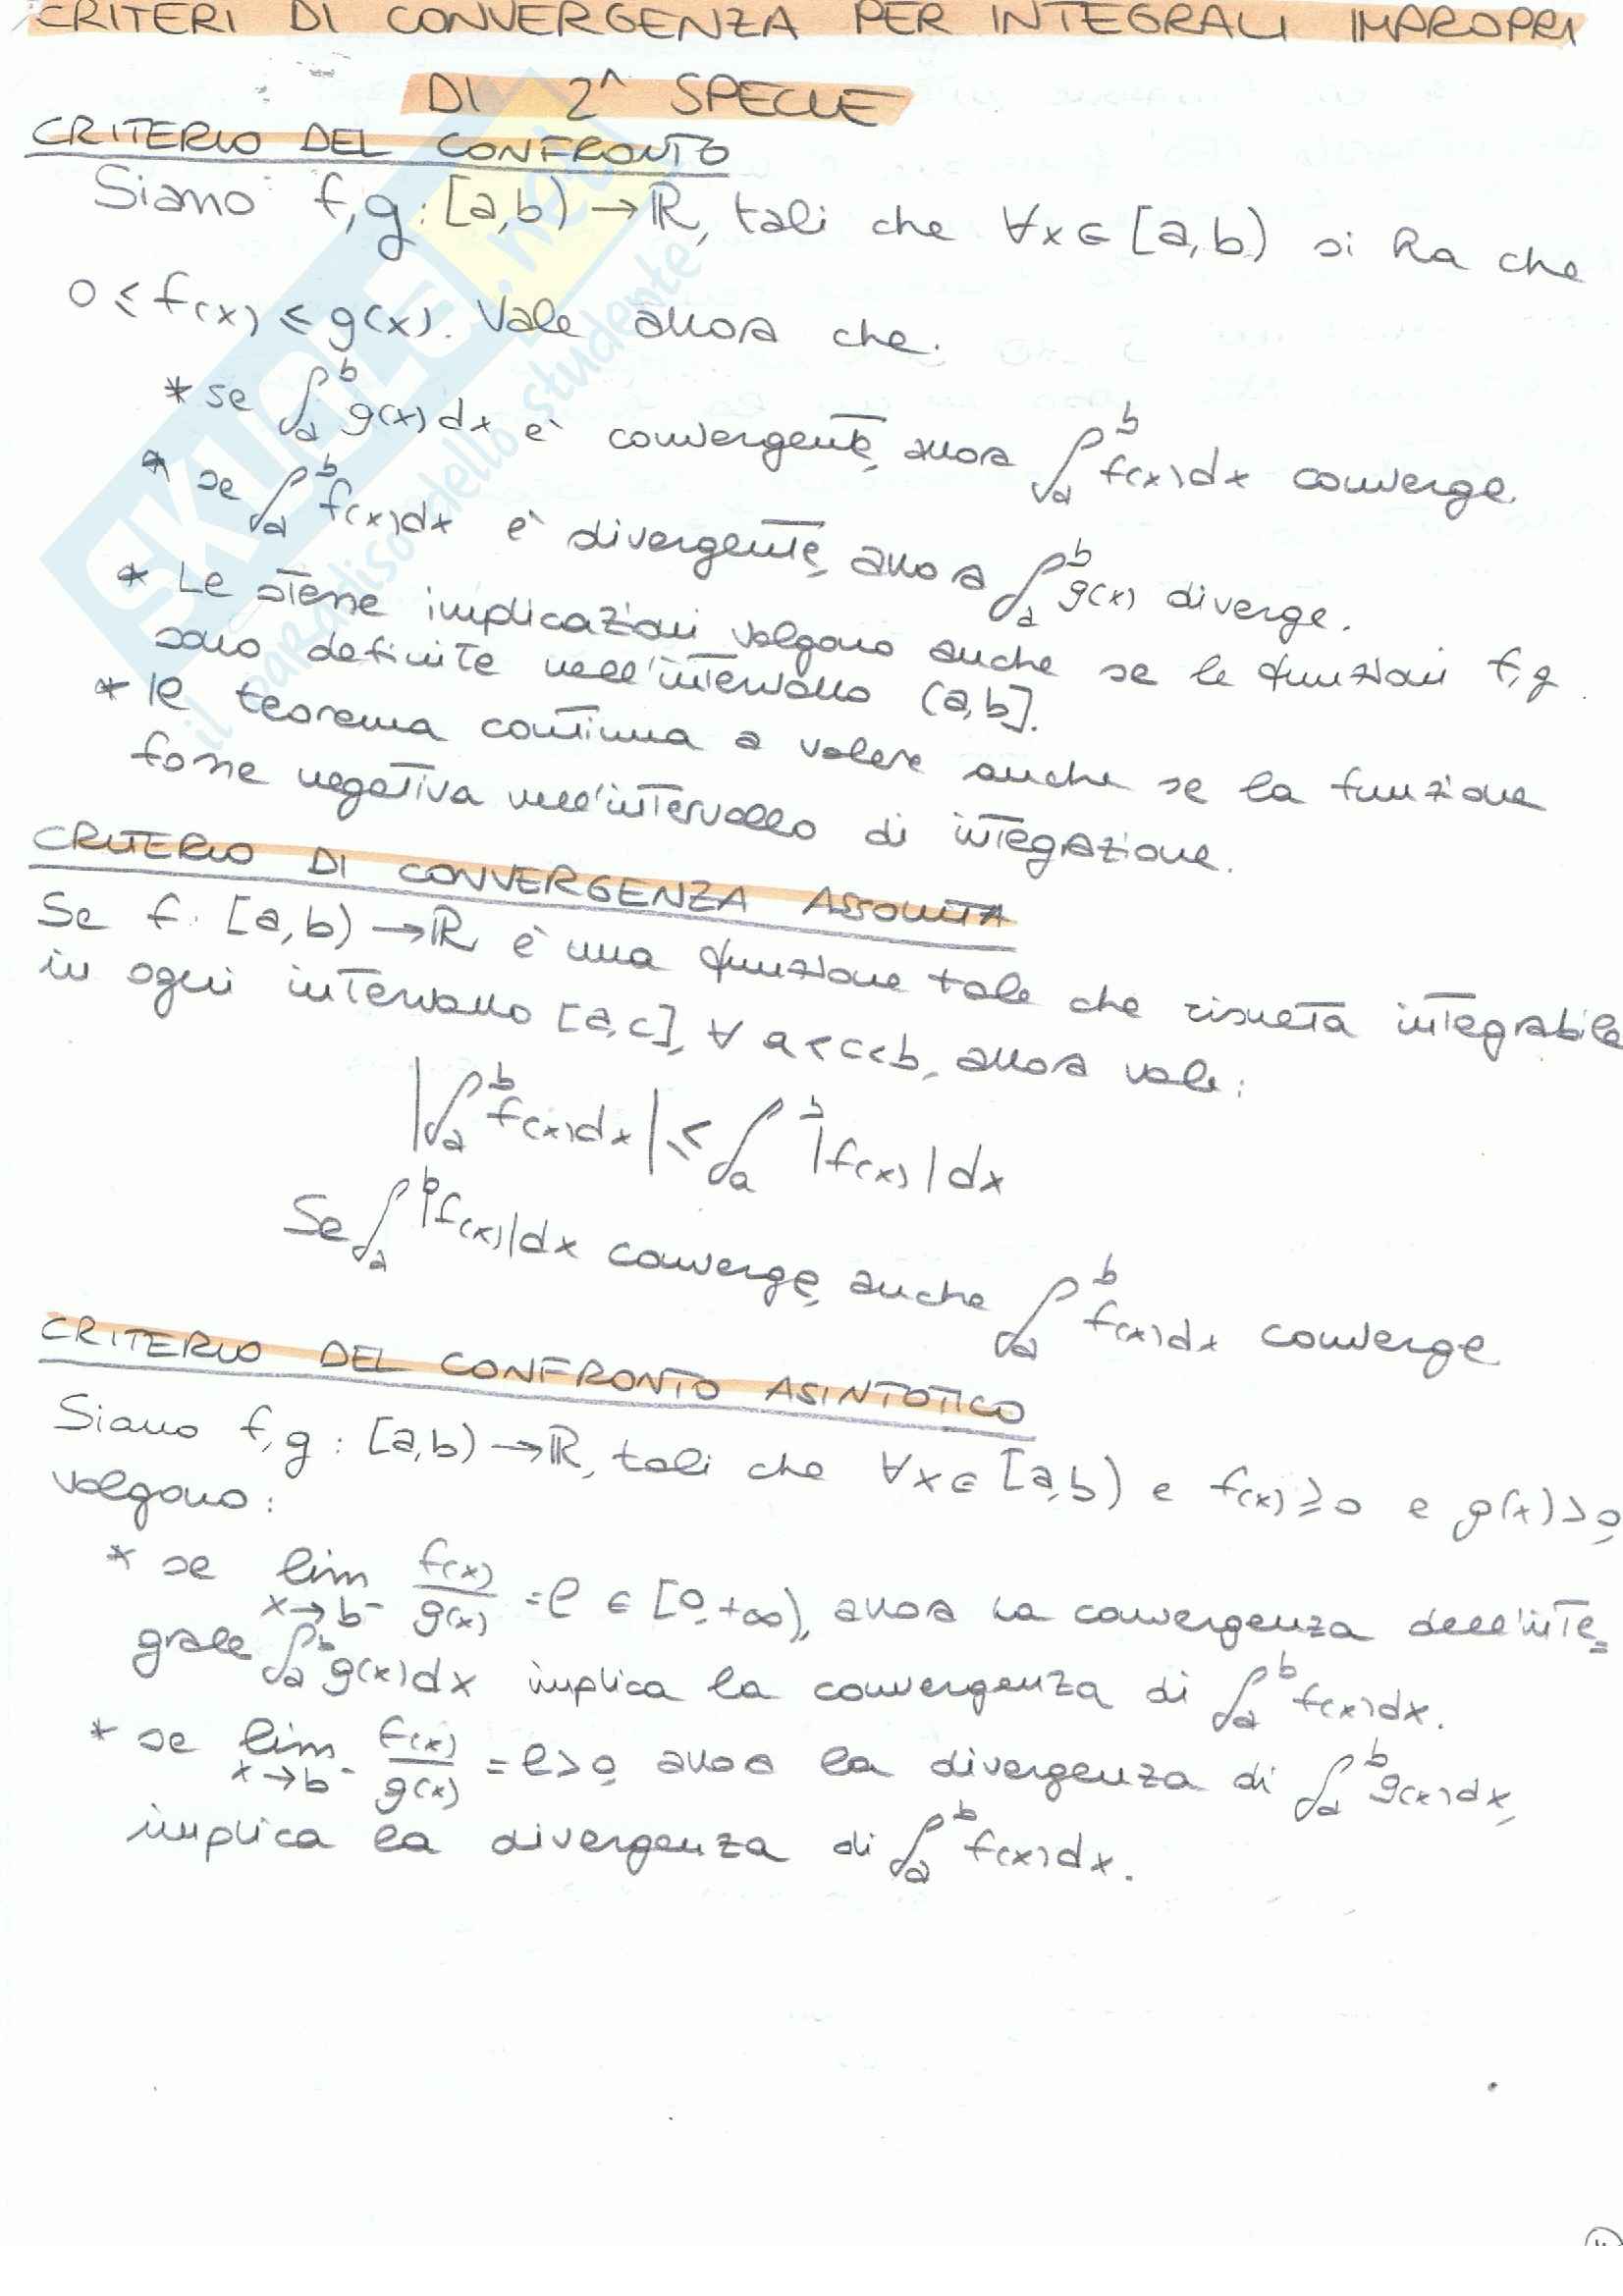 CRITERI DI CONVERGENZA PER INTEGRALI IMPROPRI
DI 2^ SPECIE
CRITERIO DEL CONFRONTO
Siano f,g: [a,b) → ℝ, tali che ∀x∈[a,b) si ha che
0 ≤ f(x) ≤ g(x). Vale allora che:
* se ∫_a^b g(x)dx è convergente, allora ∫_a^b f(x)dx converge.
* se ∫_a^b f(x)dx è divergente, allora ∫_a^b g(x) diverge.
* Le stesse implicazioni valgono anche se le funzioni f,g
sono definite nell'intervallo (a,b].
* Il teorema continua a valere anche se la funzione
fosse negativa nell'intervallo di integrazione.
CRITERIO DI CONVERGENZA ASSOLUTA
Se f: [a,b) → ℝ è una funzione tale che risulta integrabile
in ogni intervallo [a,c], ∀ a<c<b, allora vale:
|∫_a^b f(x)dx| ≤ ∫_a^b |f(x)|dx
Se ∫_a^b |f(x)|dx converge, anche ∫_a^b f(x)dx converge
CRITERIO DEL CONFRONTO ASINTOTICO
Siano f,g: [a,b) → ℝ, tali che ∀x∈[a,b) e f(x)≥0 e g(x)>0,
valgono:
* se lim_{x→b⁻} f(x)/g(x) = l ∈ [0,+∞), allora la convergenza dell'inte=
grale ∫_a^b g(x)dx implica la convergenza di ∫_a^b f(x)dx.
* se lim_{x→b⁻} f(x)/g(x) = l>0, allora la divergenza di ∫_a^b g(x)dx,
implica la divergenza di ∫_a^b f(x)dx.
SKUOLA.net
il paradiso dello studente